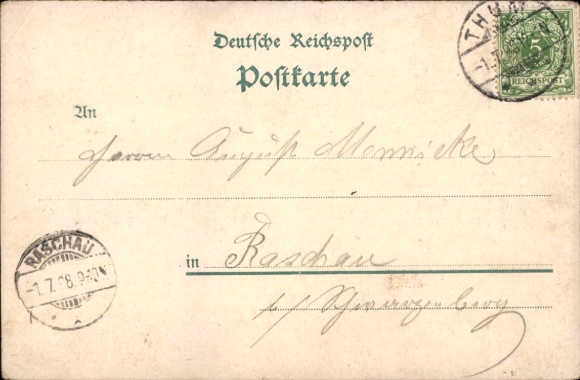 Deutsche Reichspost
Postkarte
THUM
-1.7.
5
REICHSPOST
An
Herrn August
in Raschau
b/ Schwarzenberg
RASCHAU
-1.7.98. 9-10V